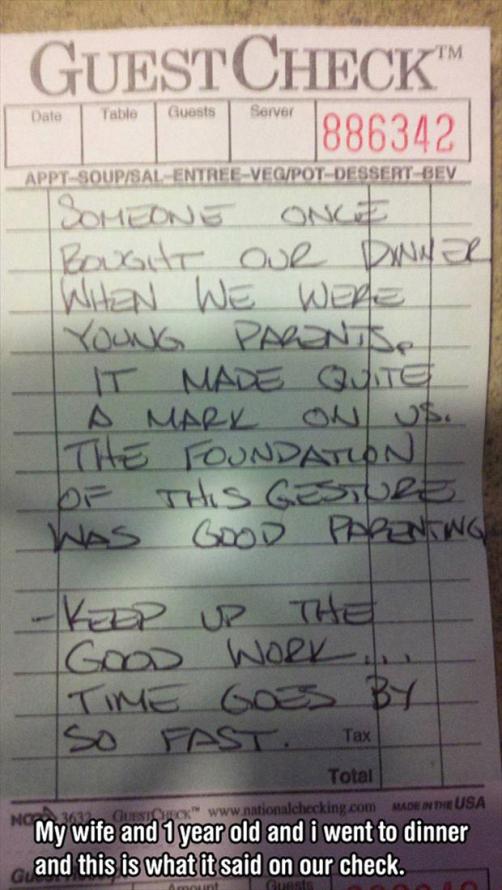 GUEST CHECK™
Date Table Guests Server 886342
APPT-SOUP/SAL-ENTREE-VEG/POT-DESSERT-BEV
SOMEONE ONCE
BOUGHT OUR DINNER
WHEN WE WERE
YOUNG PARENTS.
IT MADE QUITE
A MARK ON US.
THE FOUNDATION
OF THIS GESTURE
WAS GOOD PARENTING
-KEEP UP THE
GOOD WORK...
TIME GOES BY
SO FAST. Tax
Total
3632 GUEST CHECK™ www.nationalchecking.com MADE IN THE USA
My wife and 1 year old and i went to dinner
and this is what it said on our check.
Amount Guests